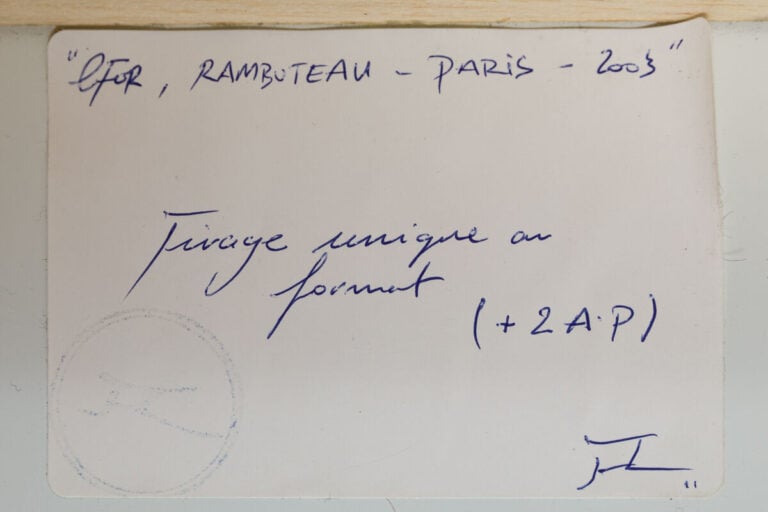 "GFOR, RAMBUTEAU - PARIS - 2003"
Tirage unique au
format
(+ 2 A.P)